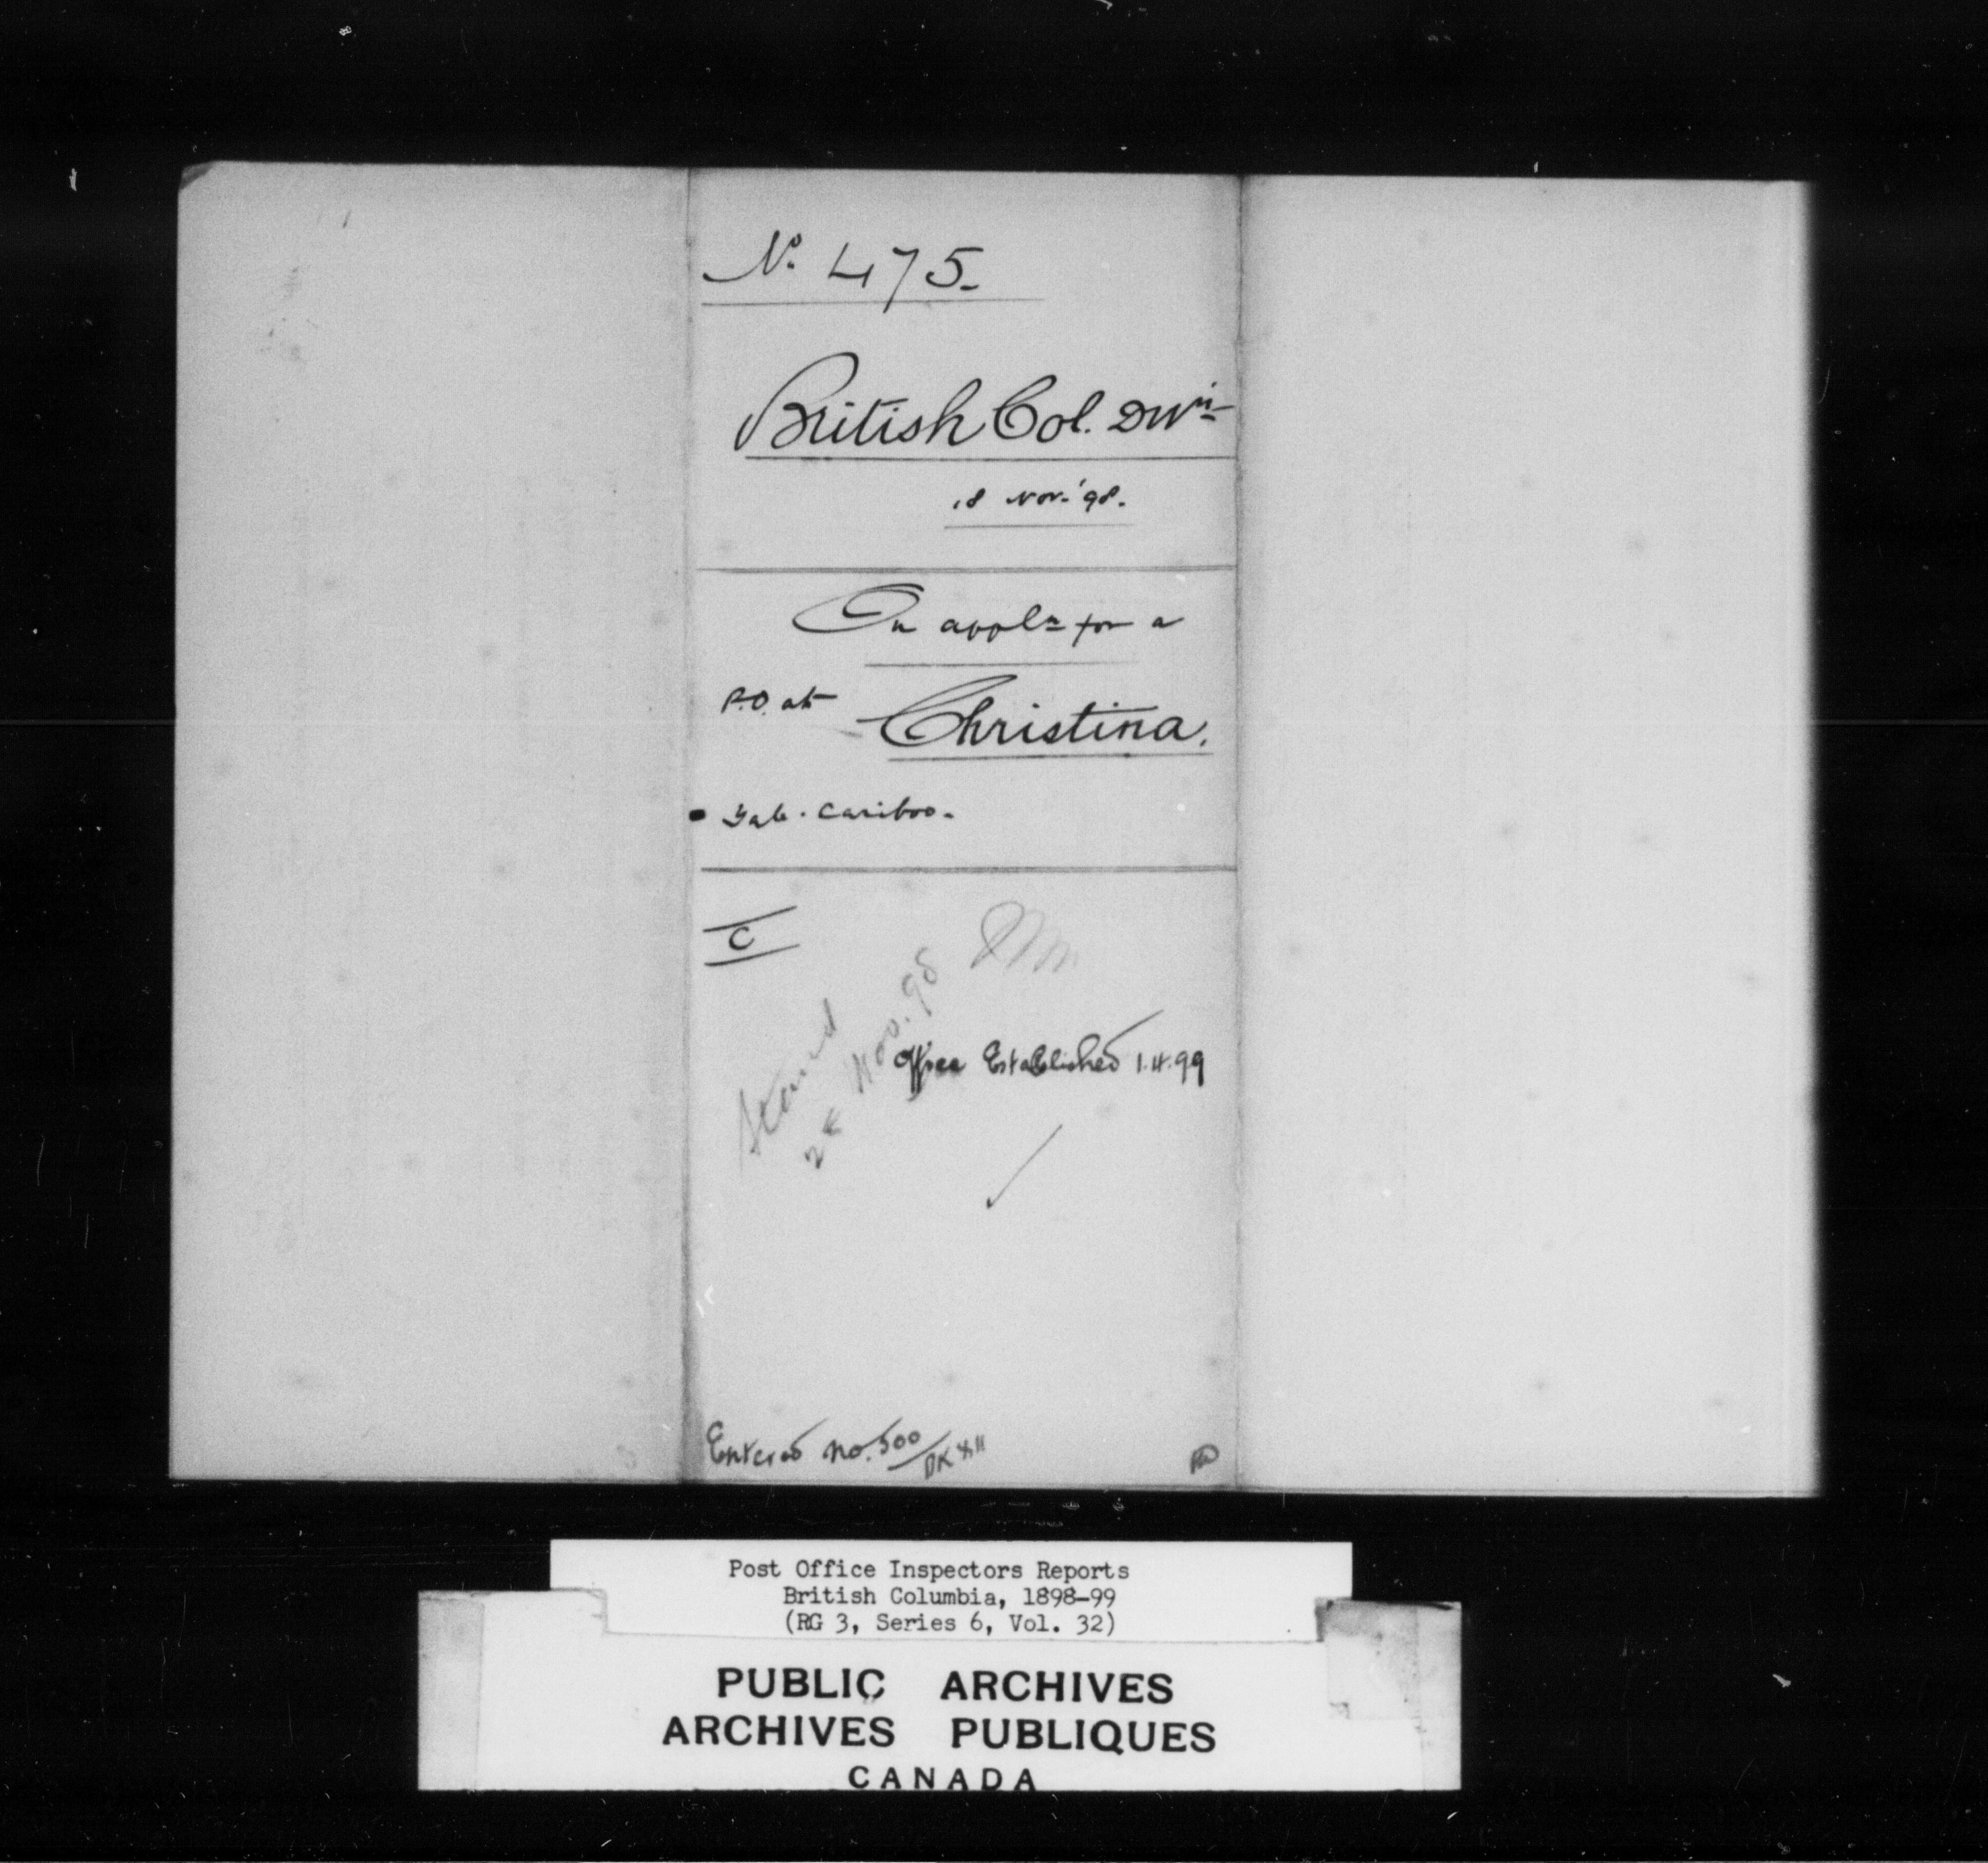 No. 475.
British Col. Divn
18 Nov. '98.
On appln for a
P.O. at Christina.
Yale-Cariboo.
C
Stand
Nov. 98
Office Established 1.4.99
Entered No. 500
Post Office Inspectors Reports
British Columbia, 1898-99
(RG 3, Series 6, Vol. 32)
PUBLIC ARCHIVES
ARCHIVES PUBLIQUES
CANADA